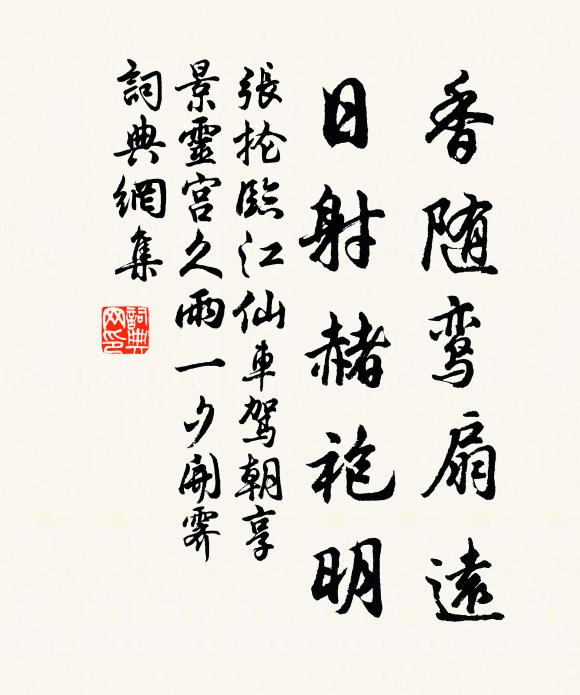 香随鸾扇遠
日射赭袍明
張掄臨江仙車駕朝享
景靈宮久雨一夕開霽
詞典網集
詞典网印